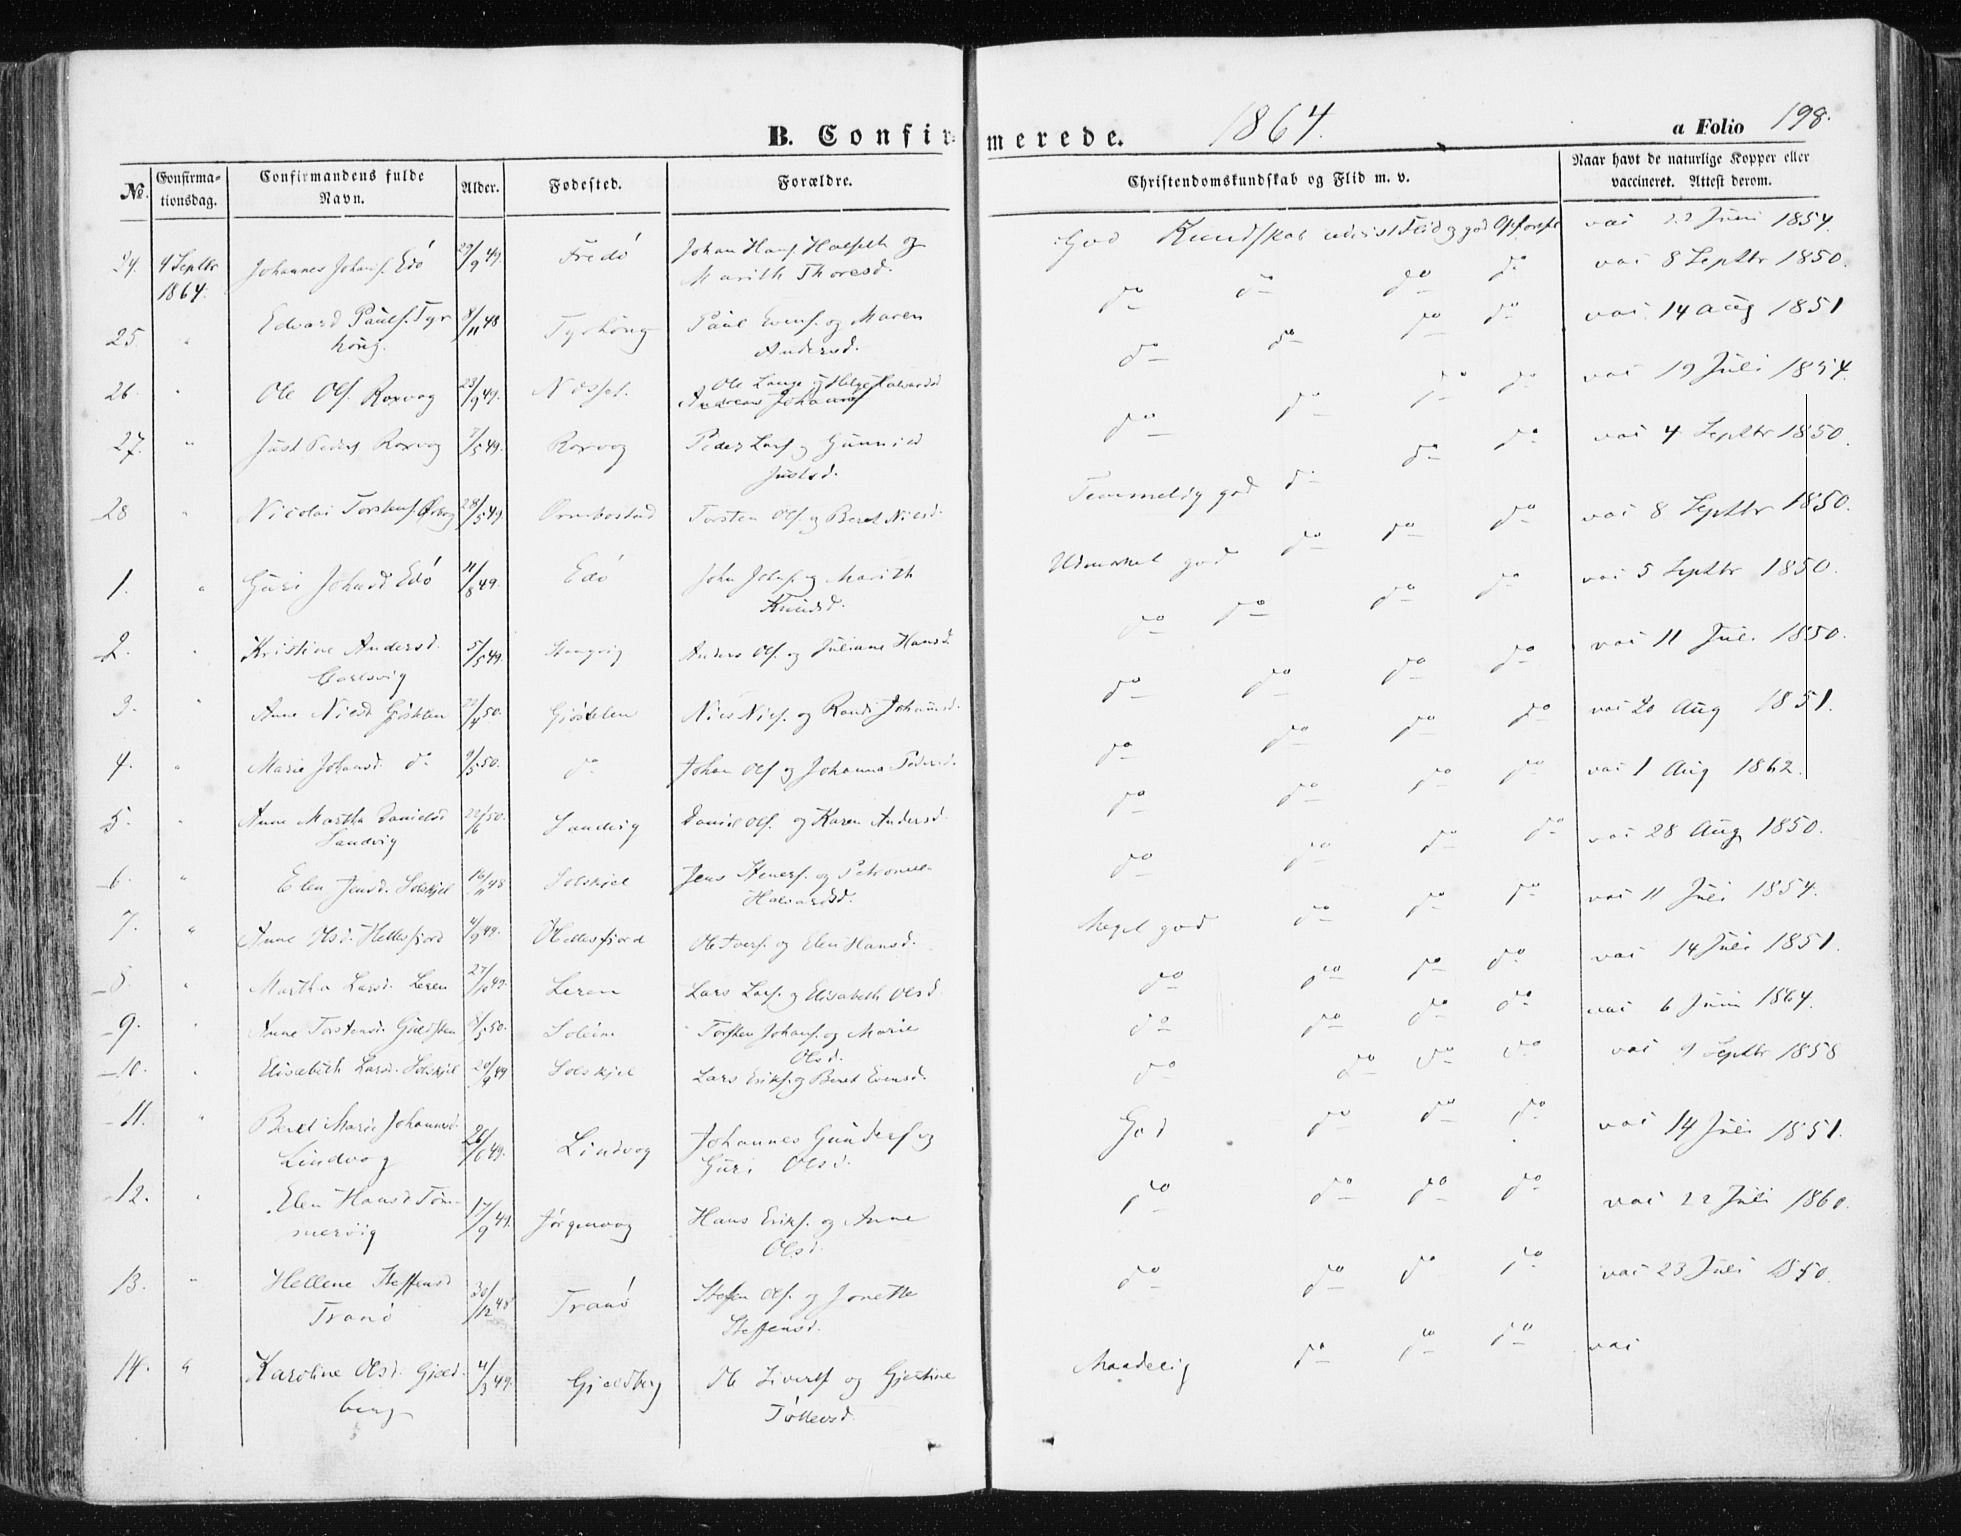 B. Confirmerede. 1864. a Folio 198.
No. Confirmationsdag. Confirmandens fulde Navn. Alder. Fødested. Forældre. Christendomskundskab og Flid m. v. Naar havt de naturlige Kopper eller vaccineret. Attest derom.
24. 4 Septbr 1864. Johannes Johans. Edö 29/9 49. Fredö Johan Hans. Halseth og Marith Thoresd. God Kundskab udvist Flid og god Opførsel vac 22 Juni 1854.
25. " Edvard Pauls. Tyrhoug. 4/11 48 Tyrhoug Paul Evens. og Maren Andersd. do do do do vac 8 Septbr 1850.
26 " Ole Ols. Roxvog 23/9 49. Ole Lange og Helge Halvardsd do do do do vac 14 Aug 1851
27. " Just Peders Roxvog 7/5 49. Roxvog Peder Lars. og Gunnild Justsd. do do do do vac 19 Juli 1854.
28 " Nicolai Torstens. 28/5 49 Ornbostad Torsten Ols. og Beret Nilsd. Temmelig god do do do vac 4 Septbr 1850.
1. " Guri Johnsd Edö 11/8 49. Edö John Johns. og Marith Knudsd. Udmærket god do do do vac 8 Septbr 1850.
2. " Kristine Andersd. Carlsvig 5/5 49. Stangvig Anders Ols. og Juliane Hansd. do do do do vac 5 Septbr 1850.
3. " Anne Nilsd. Gjöstelen 22/4 50. Gjöstelen Niels Niels. og Randi Johannsd. do do do do vac 11 Juli 1850.
4. " Marie Johansd. do 9/5 50. do Johan Ols og Johanna Pedersd. do do do do vac 20 Aug 1851.
5. " Anne Martha Danielsd Sandvig 22/6 50. Sandvig Daniel Ols. og Karen Andersd. do do do do vac 1 Aug 1862.
6. " Elen Jensd. Solskjel 16/11 48 Solskjel Jens Steners. og Petronelle Halvardsd. do do do do vac 28 Aug 1850.
7. " Anne Olsd. Hellesfjord 4/9 49. Hellesfjord Ole Ivers. og Elen Hansd. Meget god do do do vac 11 Juli 1854.
8. " Martha Larsd. Leren 27/10 49. Leren Lars Lars. og Elisabeth Olsd. do do do do vac 14 Juli 1851.
9. " Anne Torstensd. 4/5 50. Soleim Torsten Johans. og Marie Olsd. do do do do vac 6 Juni 1864.
10. " Elisabeth Larsd. Solskjel 20/9 49 Solskjel Lars Eriks. og Beret Evensd. do do do do vac 9 Septbr 1858
11. " Beret Marie Johannesd. Lindvog 26/6 49. Lindvog Johannes Gunders og Guri Olsd. God do do do vac 14 Juli 1851.
12. " Elen Hansd Tömmervig 17/9 49. Jörgenvog Hans Eriks. og Anne Olsd. do do do do vac 22 Juli 1860.
13. " Hellene Steffensd Tranö 30/12 48 Tranö Stefen Ols. og Jonette Steffensd. do do do do vac 23 Juli 1850.
14. " Karoline Olsd. Gjeldberg 4/3 49. Gjeldberg Ole Sivers og Gjertine Tollevsd. Maadelig do do do vac